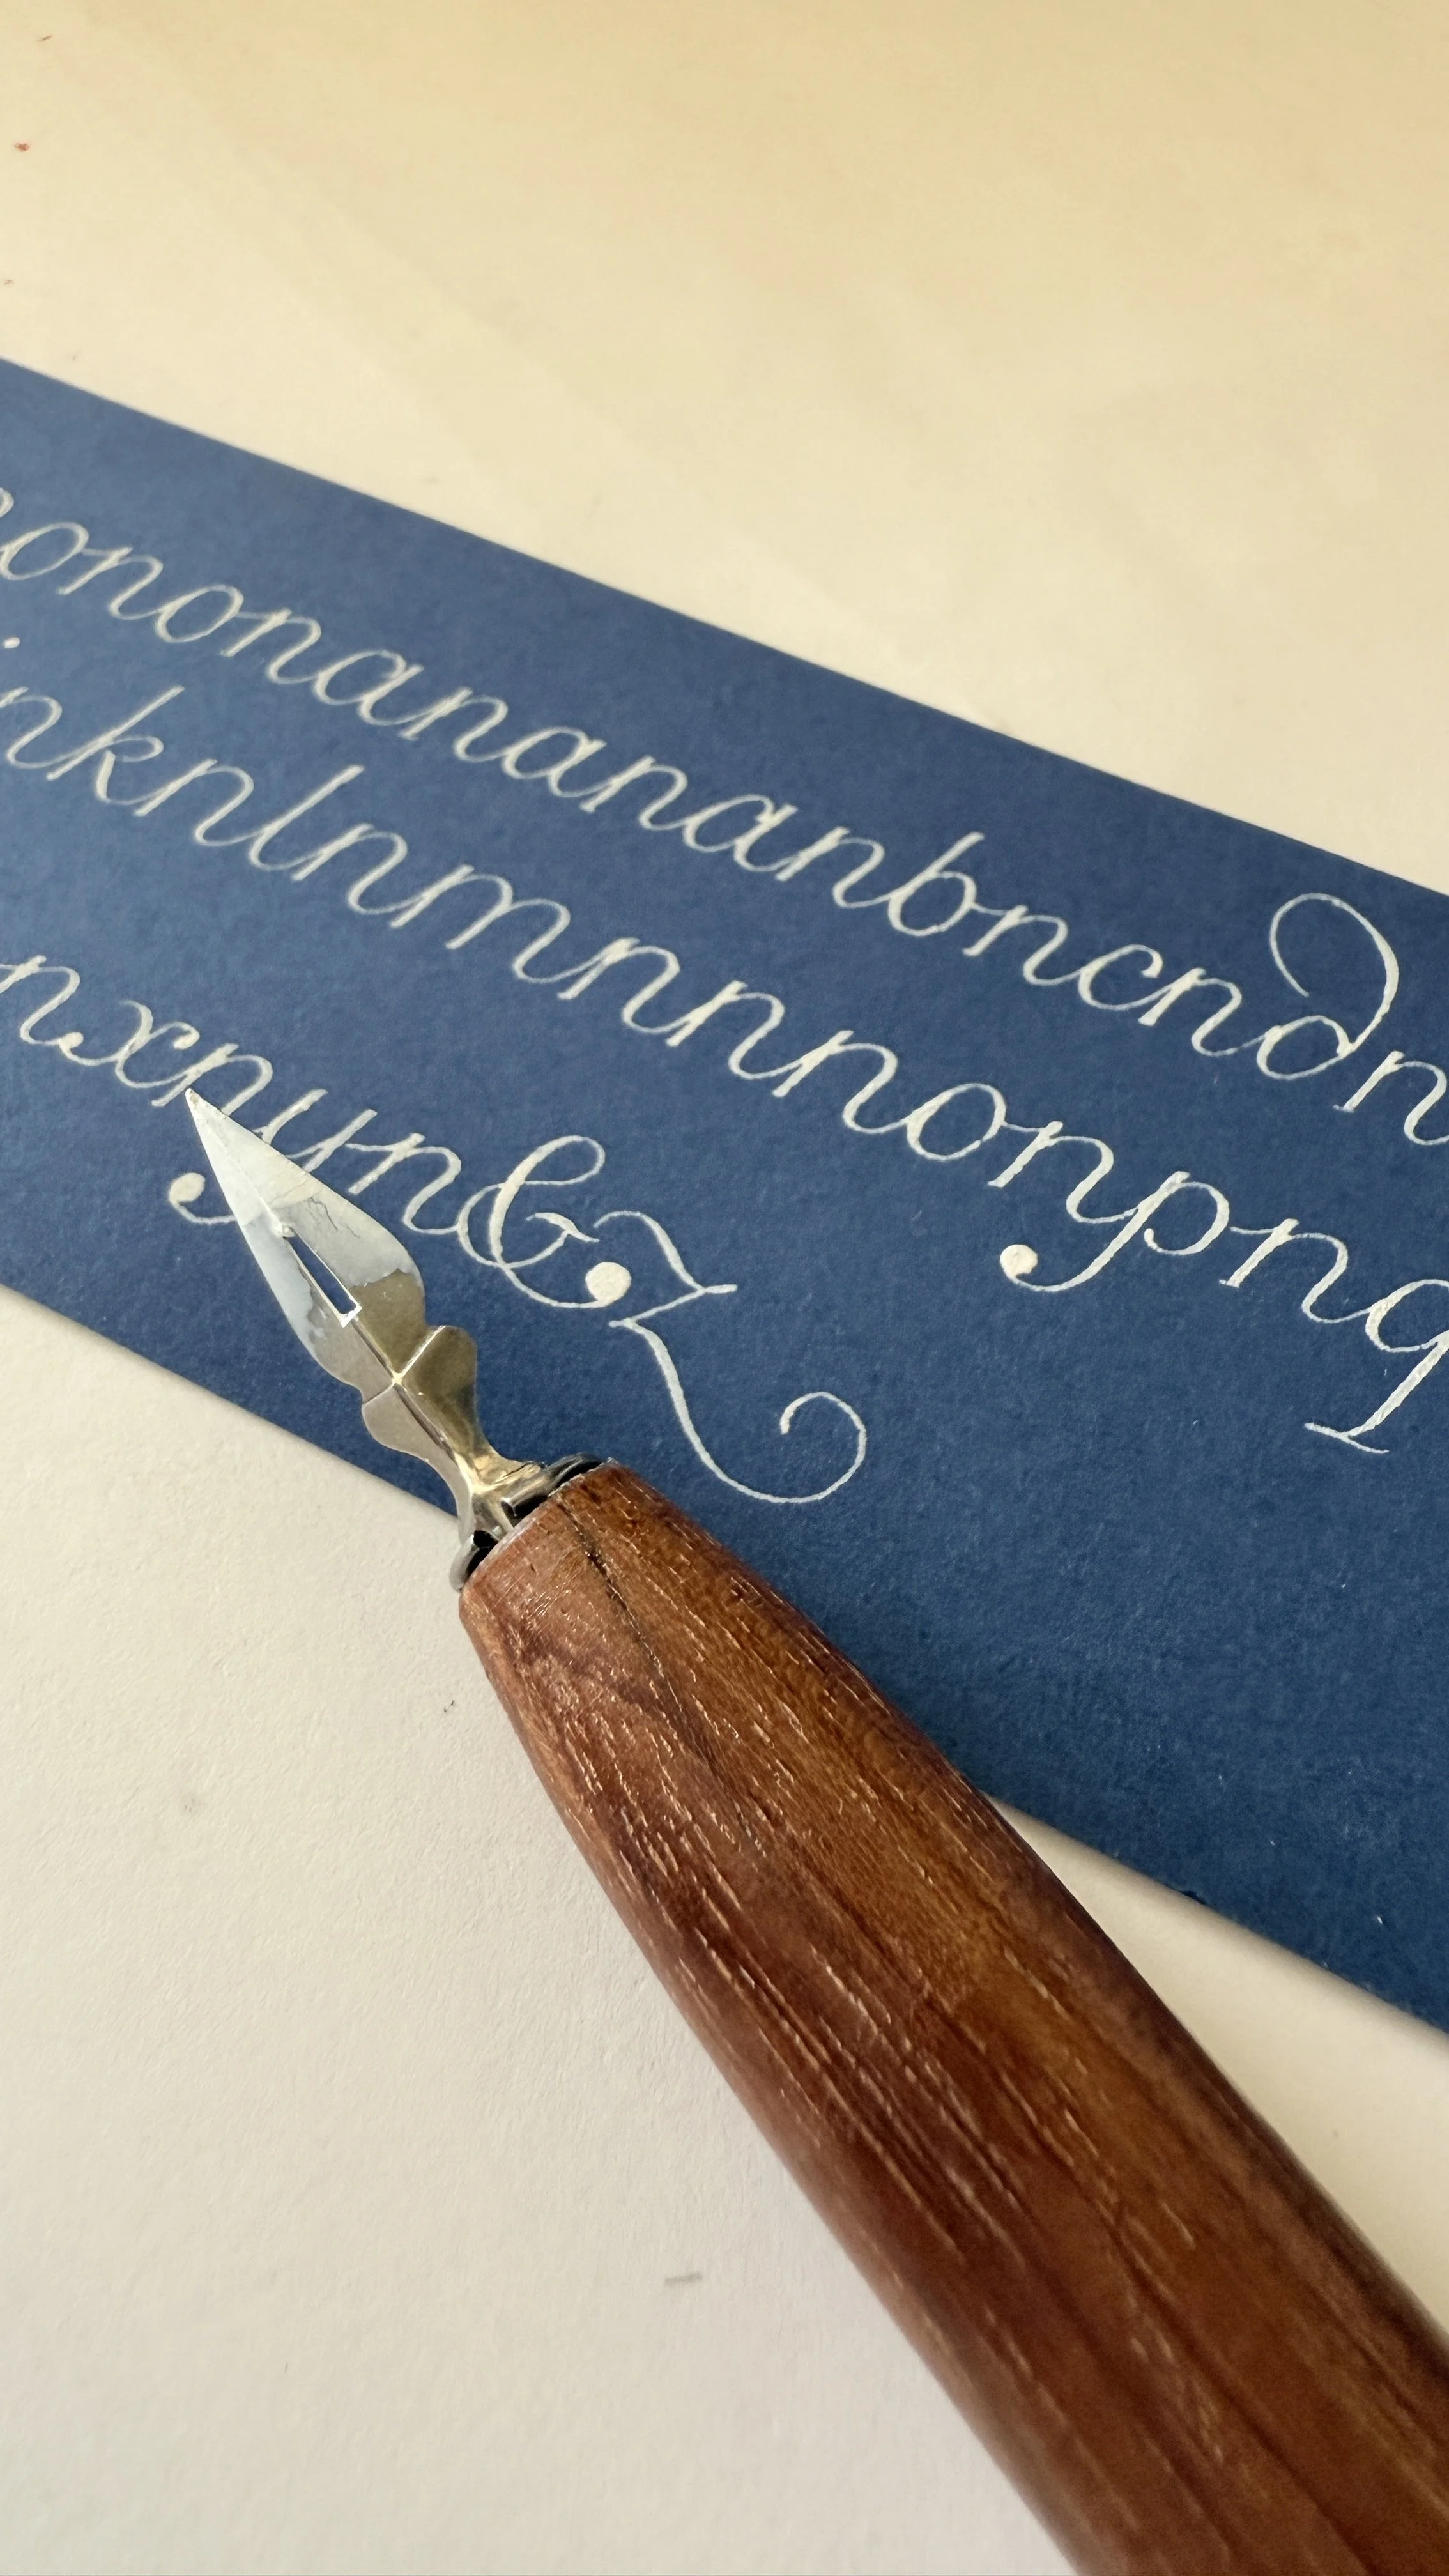 nononanananbncndn
nknlnmnnnonpnq
nxnyn&z